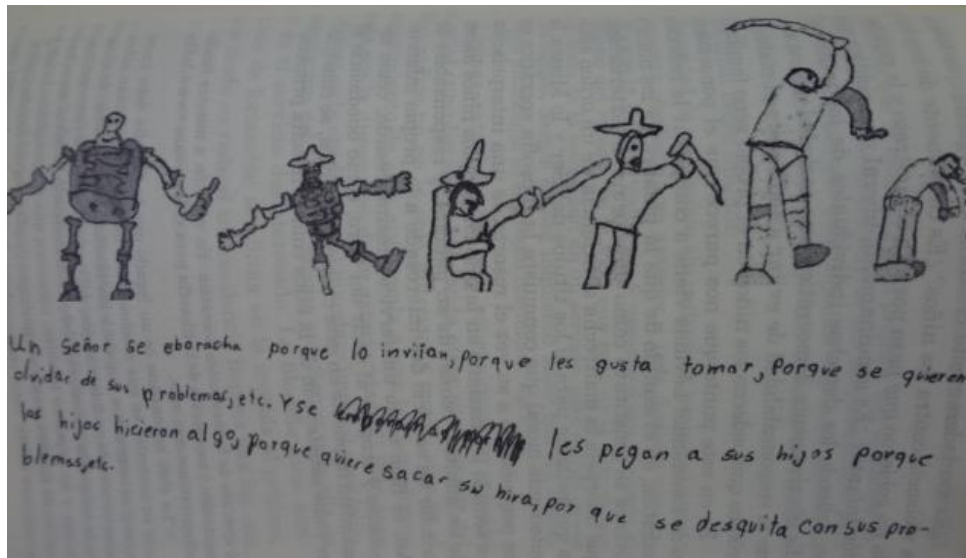 Un señor se eboracha porque lo invitan, porque les gusta tomar, porque se quieren
olvidar de sus problemas, etc. Y se les pegan a sus hijos porque
los hijos hicieron algo, porque quiere sacar su hira, por que se desquita con sus pro-
blemas, etc.